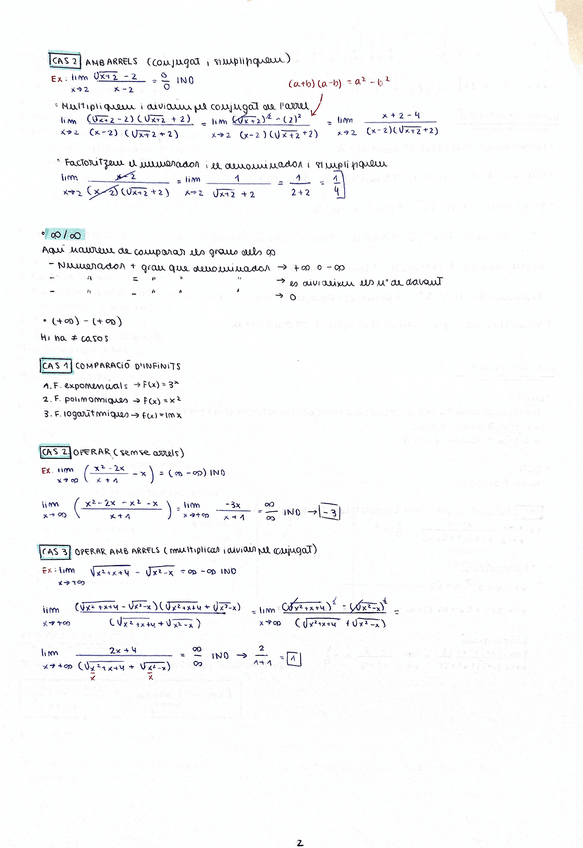 CAS 2 AMB ARRELS (conjugat i simplifiquem)
Ex: lim x→2 (√x+2 − 2)/(x−2) = 0/0 IND
(a+b)(a−b) = a² − b²
° Multipliquem i dividim pel conjugat de l'arrel
lim x→2 (√x+2 − 2)(√x+2 + 2)/(x−2)(√x+2 + 2) = lim x→2 (√x+2)² − (2)²/(x−2)(√x+2 + 2) = lim x→2 x+2−4/(x−2)(√x+2 + 2)
° Factoritzem el numerador i el denominador i simplifiquem
lim x→2 x−2/(x−2)(√x+2 + 2) = lim x→2 1/√x+2 + 2 = 1/2+2 = 1/4
° ∞/∞
Aquí haurem de comparar els graus dels ∞
− Numerador + gran que denominador → +∞ o −∞
− " = " " → es divideixen els nº de davant
− " − " " " → 0
• (+∞) − (+∞)
Hi ha ≠ casos
CAS 1 COMPARACIÓ D'INFINITS
1. F. exponencials → f(x) = 3ˣ
2. F. polinòmiques → f(x) = x²
3. F. logarítmiques → f(x) = ln x
CAS 2 OPERAR (sense arrels)
Ex. lim x→∞ (x²−2x/x+1 − x) = (∞−∞) IND
lim x→∞ (x²−2x−x²−x/x+1) = lim x→+∞ −3x/x+1 = ∞/∞ IND → −3
CAS 3 OPERAR AMB ARRELS (multiplicar i dividir pel conjugat)
Ex: lim x→+∞ √x²+x+4 − √x²−x = ∞−∞ IND
lim x→+∞ (√x²+x+4 − √x²−x)(√x²+x+4 + √x²−x)/(√x²+x+4 + √x²−x) = lim x→∞ (√x²+x+4)² − (√x²−x)²/(√x²+x+4 + √x²−x) =
lim x→+∞ 2x+4/(√x²+x+4 + √x²−x) = ∞/∞ IND → 2/1+1 = 1
x x
2